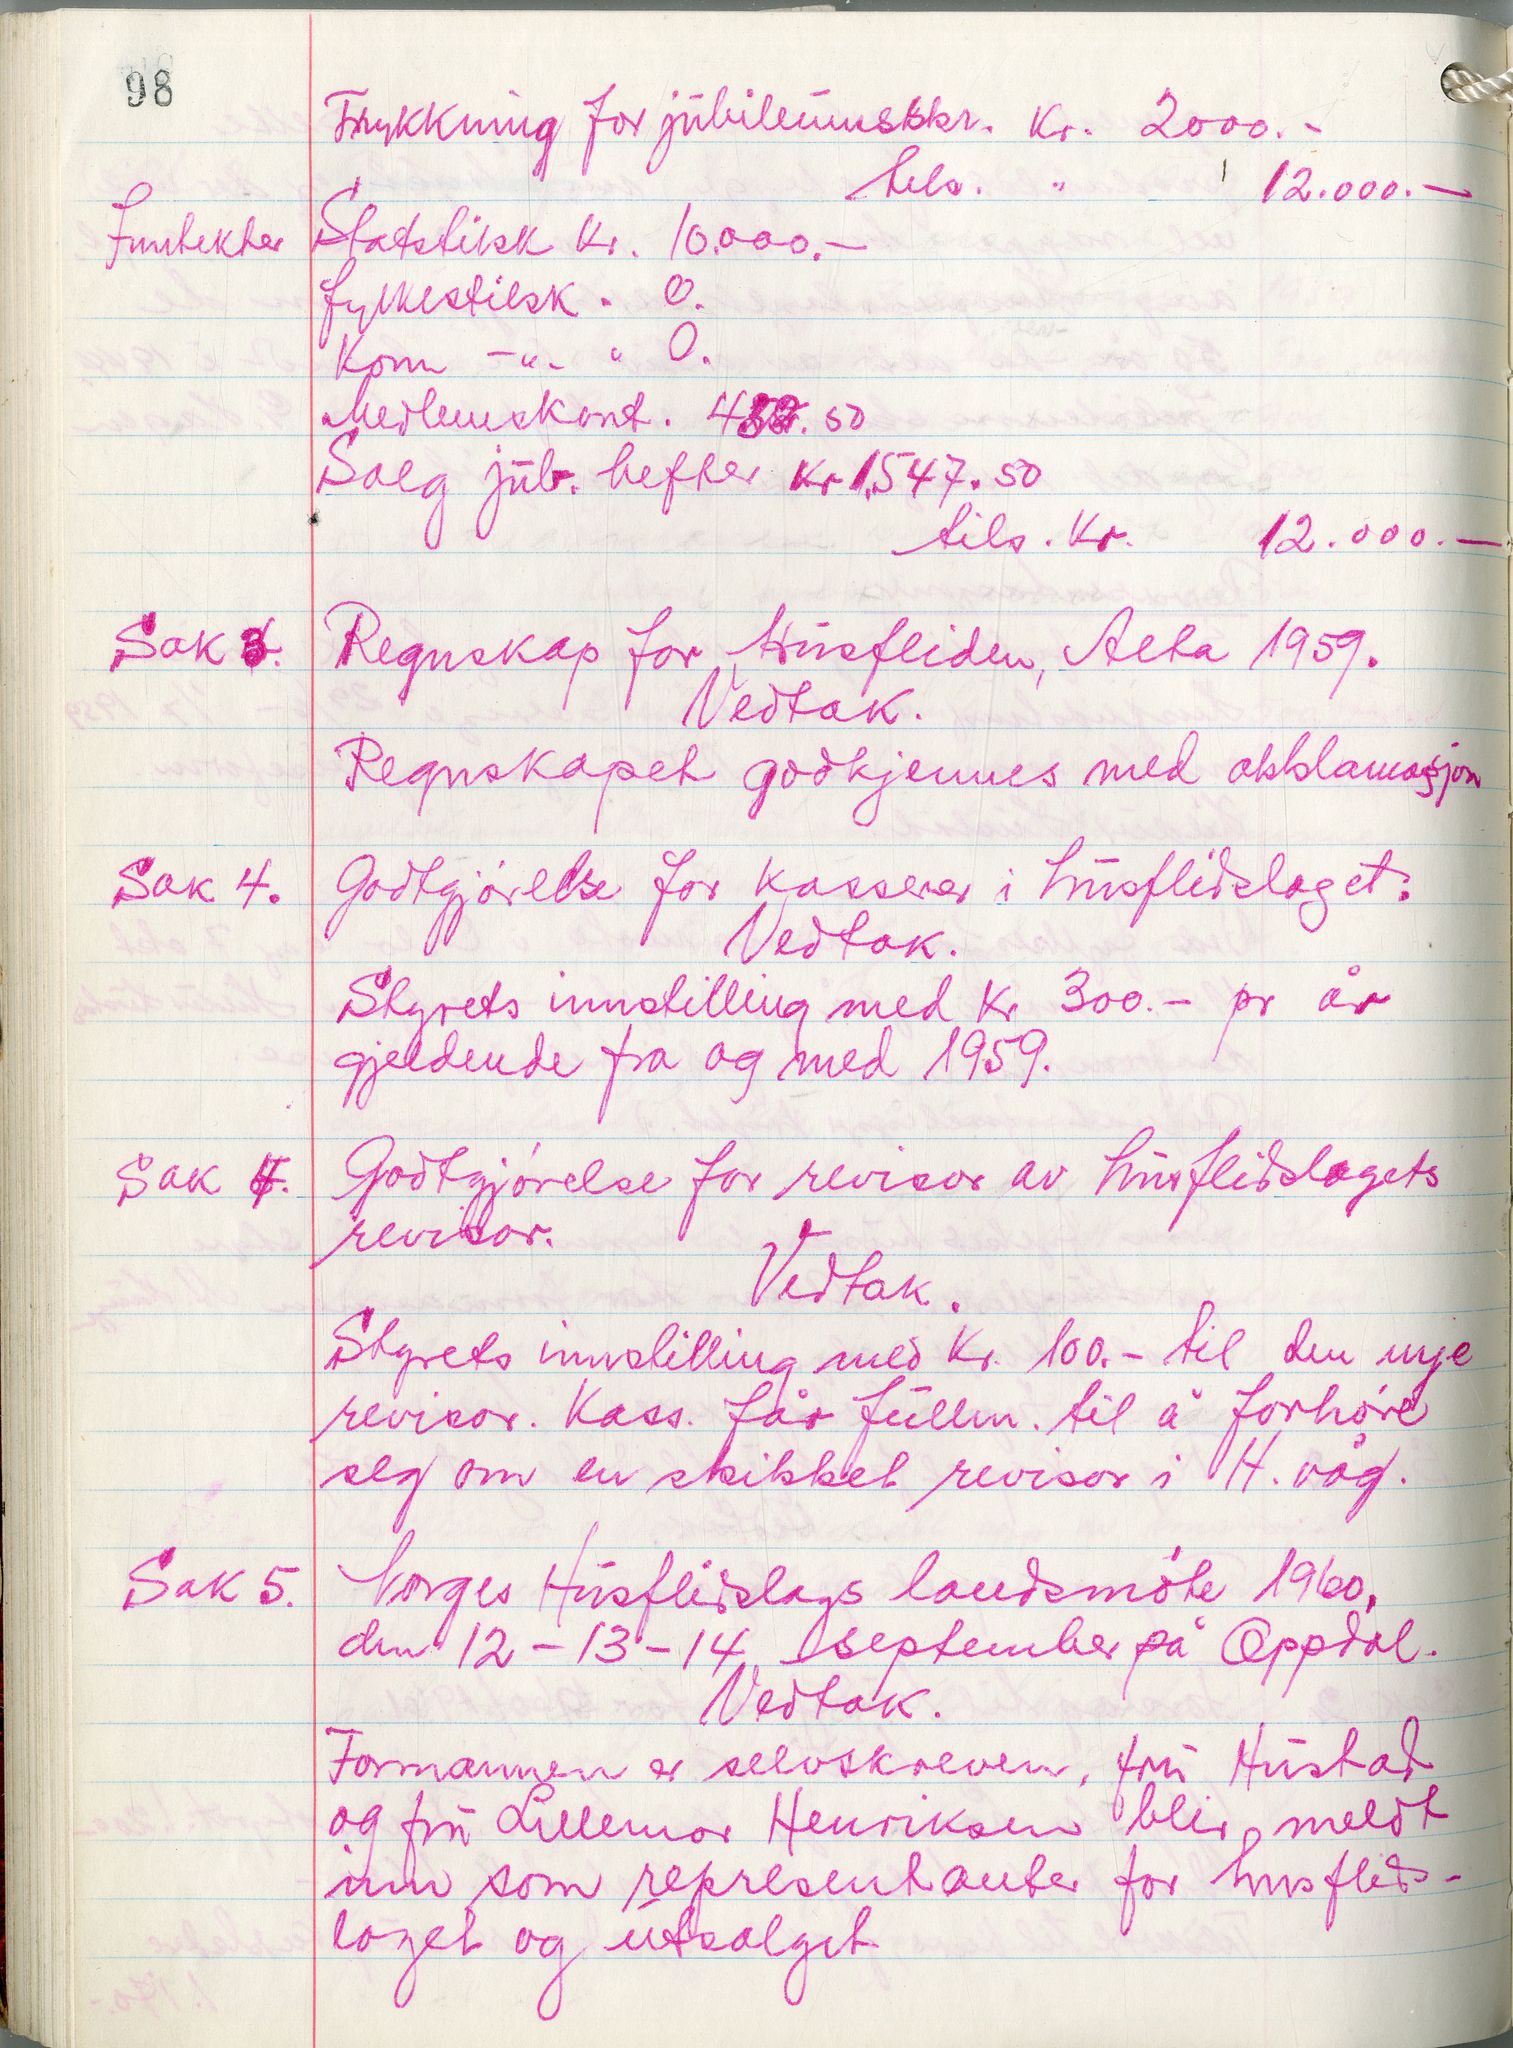 98
Trykkning for jubileumsskr. Kr. 2000.-
tils. " 12.000.-
Inntekter Statstilsk Kr. 10.000.-
fylkestilsk. " 0.
Kom -"- " 0.
Medlemskont. 452.50
Salg jub. hefter Kr 1.547.50
tils. Kr. 12.000.-
Sak 3. Regnskap for Husfliden, Alta 1959.
Vedtak.
Regnskapet godkjennes med akklamasjon
Sak 4. Godtgjørelse for kasserer i husflidslaget:
Vedtak.
Styrets innstilling med Kr 300.- pr år
gjeldende fra og med 1959.
Sak 4. Godtgjørelse for revisor av husflidslagets
revisor.
Vedtak.
Styrets innstilling med Kr. 100.- til den nye
revisor. Kass. får fullm. til å forhøre
seg om en skikket revisor i H. våg.
Sak 5. Norges Husflidslags landsmøte 1960,
den 12-13-14 september på Oppdal.
Vedtak.
Formannen er selvskreven, fru Hustad
og fru Lillemor Henriksen blir meldt
inn som representanter for husflids-
laget og utsalget